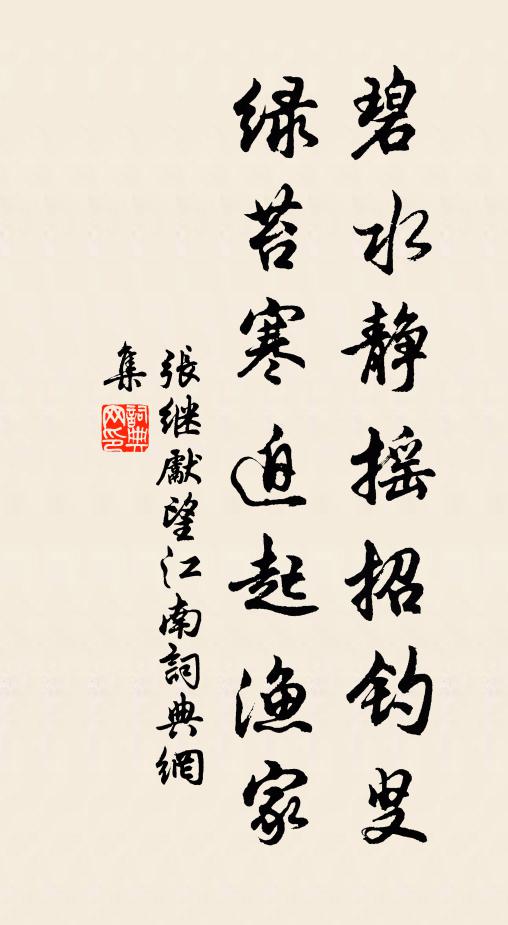 碧水静摇招钓叟
绿苔寒迫起渔家
張继献望江南詞典網
集
詞典网印